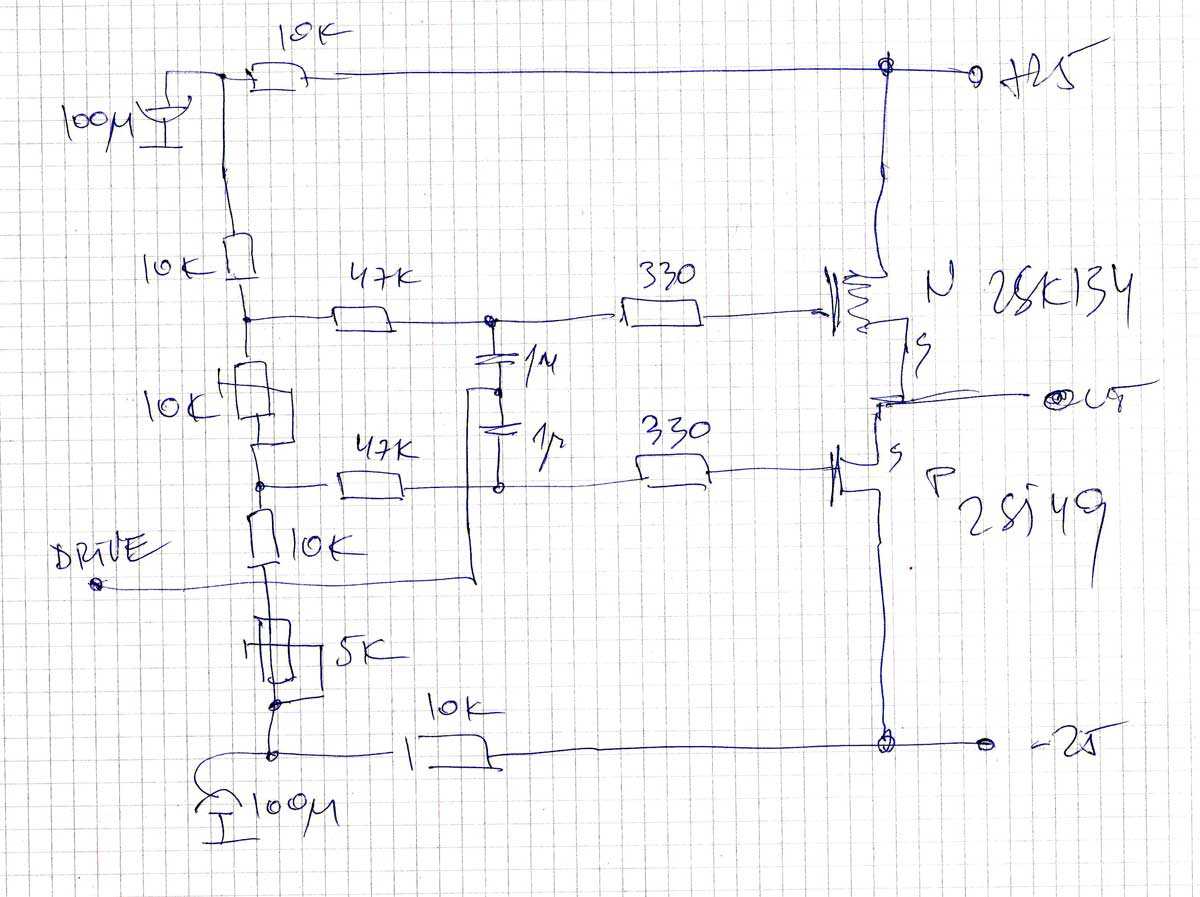 10K
+25
100µ
10K
47K
330
N 2SK134
1µ
S
10K
OUT
47K
1µ
330
S
P
2Sj49
10K
DRIVE
5K
10K
-25
100µ